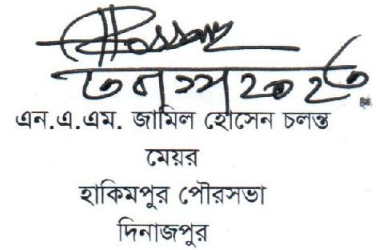 এন.এ.এম. জামিল হোসেন চলন্ত
মেয়র
হাকিমপুর পৌরসভা
দিনাজপুর